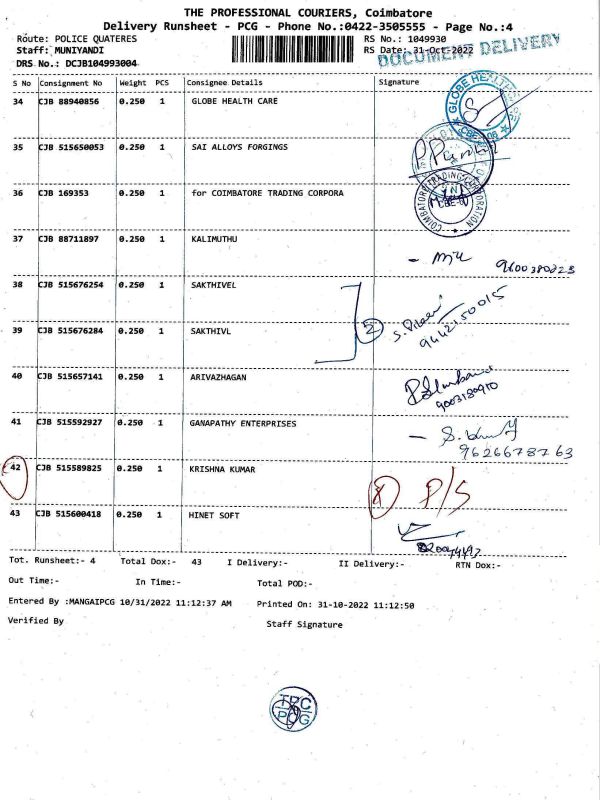 THE PROFESSIONAL COURIERS, Coimbatore
Delivery Runsheet - PCG - Phone No.:0422-3505555 - Page No.:4
Route: POLICE QUATERES RS No.: 1049930
Staff: MUNIYANDI RS Date: 31-Oct-2022
DOCUMENT DELIVERY
DRS No.: DCJB104993004
S No Consignment No Weight PCS Consignee Details Signature
34 CJB 88940856 0.250 1 GLOBE HEALTH CARE
GLOBE HEALTH
35 CJB 515650053 0.250 1 SAI ALLOYS FORGINGS
36 CJB 169353 0.250 1 for COIMBATORE TRADING CORPORA
COIMBATORE TRADING CORPORATION
37 CJB 88711897 0.250 1 KALIMUTHU
38 CJB 515676254 0.250 1 SAKTHIVEL
2
39 CJB 515676284 0.250 1 SAKTHIVL
9442150015
40 CJB 515657141 0.250 1 ARIVAZHAGAN
41 CJB 515592927 0.250 1 GANAPATHY ENTERPRISES
9626678763
42 CJB 515589825 0.250 1 KRISHNA KUMAR X P/S
43 CJB 515600418 0.250 1 HINET SOFT
Tot. Runsheet:- 4 Total Dox:- 43 I Delivery:- II Delivery:- RTN Dox:-
Out Time:- In Time:- Total POD:-
Entered By :MANGAIPCG 10/31/2022 11:12:37 AM Printed On: 31-10-2022 11:12:50
Verified By Staff Signature
TPC
PCG